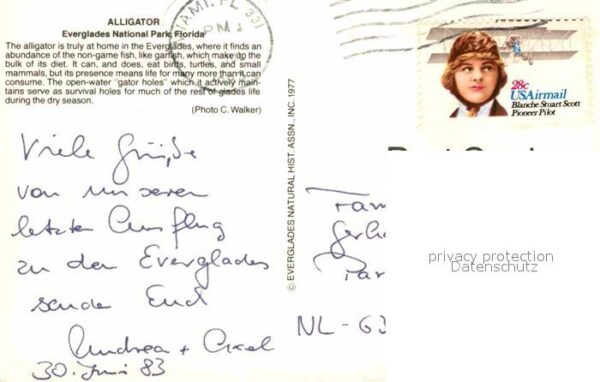 ALLIGATOR
Everglades National Park, Florida
The alligator is truly at home in the Everglades, where it finds an
abundance of the non-game fish, like garfish, which make up the
bulk of its diet. It can, and does, eat birds, turtles, and small
mammals, but its presence means life for many more than it can
consume. The open-water "gator holes" which it actively main-
tains serve as survival holes for much of the rest of glades life
during the dry season.
(Photo C. Walker)
MIAMI, FL 331
PM
28c
USAirmail
Blanche Stuart Scott
Pioneer Pilot
© EVERGLADES NATURAL HIST. ASSN., INC. 1977
Viele Grüße
von unseren
letzten Ausflug
zu den Everglades
sende Euch
Andrea + Axel
30. Juni 83
Fam
Gerh
Par
NL-63
privacy protection
Datenschutz